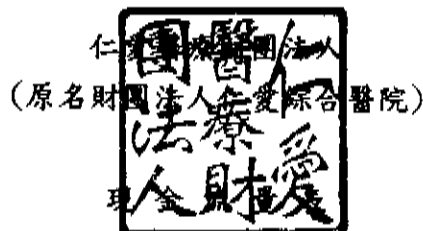 仁愛醫療財團法人
(原名財團法人仁愛綜合醫院)
現金流量表
仁愛
醫療財
團法人